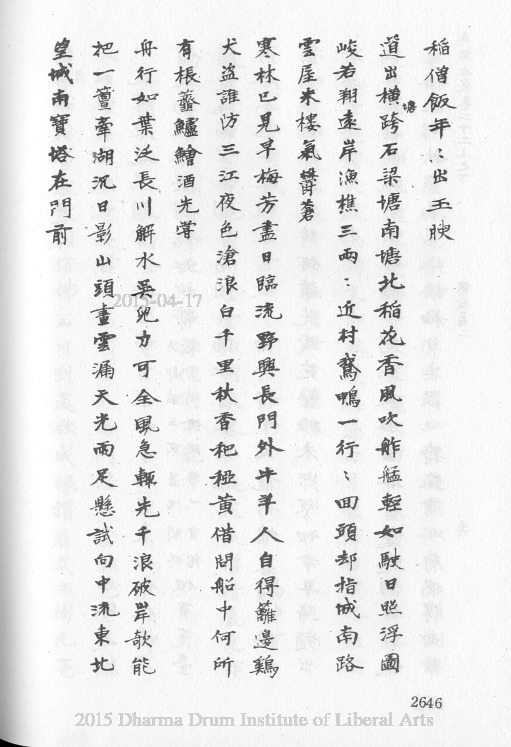 稻僧飯年〻出玉腴
道出橫塘跨石梁塘南塘北稻花香風吹舴艋輕如駛日照浮圖
峻若翔遠岸漁樵三兩〻近村鵞鴨一行〻回頭却指城南路
雲屋米樓氣鬱蒼
寒林已見早梅芳盡日臨流野興長門外牛羊人自得籬邊鷄
犬盜誰防三江夜色滄浪白千里秋香秬穏黃借問船中何所
有棖虀鱸鱠酒先嘗
舟行如葉泛長川解水吳兒力可全風急輒先千浪破岸欹能
把一簹牽湖沉日影山頭畫雲漏天光雨足懸試向中流東北
望城南寶塔在門前
2015-04-17
2646
2015 Dharma Drum Institute of Liberal Arts